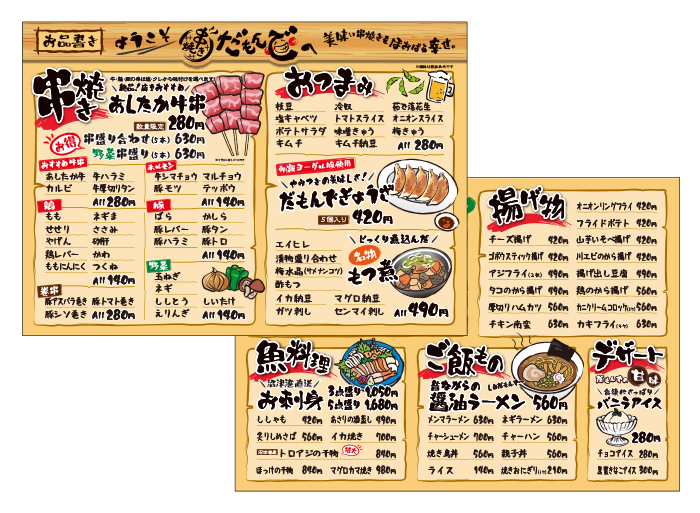 お品書き
ようこそ
串焼き
だもんでへ
美味い串焼きをほおばる幸せ。
串焼き
絶品!焼きおすすめ
あしたか牛串
数量限定 280円
お得 串盛り合わせ(5本) 630円
野菜串盛り(5本) 630円
おすすめ牛串
あしたか牛 牛ハラミ
カルビ 牛厚切りタン
All 280円
ホルモン
牛シマチョウ マルチョウ
豚モツ テッポウ
All 140円
鶏
もも ネギま
せせり ささみ
やげん 砂肝
鶏レバー かわ
ももにんにく つくね
All 140円
豚
ばら かしら
豚レバー 豚タン
豚ハラミ 豚トロ
All 140円
野菜
玉ねぎ
ネギ
ししとう しいたけ
えりんぎ All 140円
巻串
豚アスパラ巻き 豚トマト巻き
豚シソ巻き All 280円
おつまみ
枝豆 冷奴 茹で落花生
塩キャベツ トマトスライス オニオンスライス
ポテトサラダ 味噌きゅう 梅きゅう
キムチ キムチ納豆 All 280円
朝霧ヨーグル豚使用
やみつきの美味しさ!
だもんでぎょうざ
5個入り 420円
エイヒレ
漬物盛り合わせ
梅水晶(サメナンコツ)
酢もつ
イカ納豆 マグロ納豆
ガツ刺し センマイ刺し All 490円
じっくり煮込んだ
名物 もつ煮
揚げ物
オニオンリングフライ 420円
フライドポテト 420円
チーズ揚げ 420円 山芋いそべ揚げ 420円
ゴボウスティック揚げ 420円 川エビのから揚げ 420円
アジフライ(2枚) 490円 揚げ出し豆腐 490円
タコのから揚げ 490円 鶏のから揚げ 560円
厚切りハムカツ 560円 カニクリームコロッケ(2ケ) 630円
チキン南蛮 630円 カキフライ(4ケ) 630円
魚料理
沼津港直送
お刺身
3点盛り 1,050円
5点盛り 1,680円
ししゃも 420円 あさりの酒蒸し 490円
炙りしめさば 560円 イカ焼き 700円
トロアジの干物 840円
ほっけの干物 840円 マグロカマ焼き 980円
ご飯もの
昔ながらの
醤油ラーメン 560円
メンマラーメン 630円 ネギラーメン 630円
チャーシューメン 700円 チャーハン 560円
焼き鳥丼 560円 親子丼 560円
ライス 140円 焼きおにぎり(1ケ) 210円
デザート
だもんでの甘味
バニラアイス
280円
チョコアイス 280円
黒蜜きなこアイス 300円